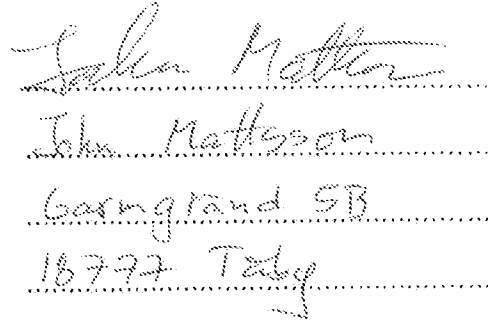 John Matts
John Mattsson
Garngränd 5B
18777 Täby